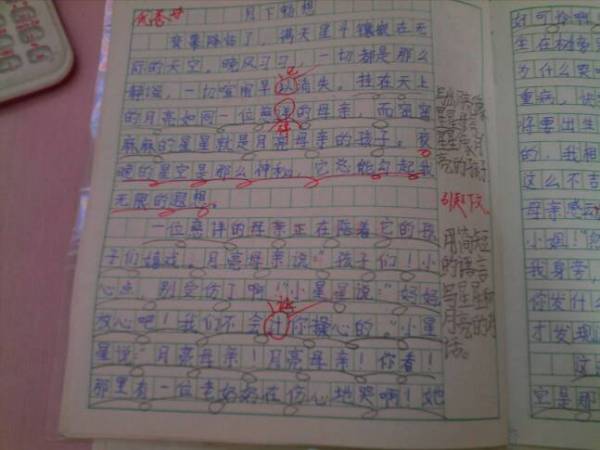 月下畅想
夜幕降临了，满天星斗镶嵌在无
际的天空，晚风习习，一切都是那么
静谧，一切喧闹早以消失。挂在天上
已
的月亮如同一位慈详的母亲，而密密
祥
麻麻的星星就是月亮母亲的孩子。夜
晚的星空是那么神秘，它总能勾起我
无限的遐想。
一位慈祥的母亲正在陪着它的孩
子们嬉戏，月亮母亲说：“孩子们！小
心点，别受伤了啊！”小星星说：“妈妈
放心吧！我们不会计你操心的。”小星
让
星说：“月亮母亲！月亮母亲！你看！
那里有一位老奶奶在伤心地哭啊！她
引起下文
用简短
的语言
写星星和
月亮的对
话。
好可怜啊
生在树
为什么哭
重病，
将要出生
的，我相
这么不吉
母亲感
小姐！
我身旁，
你发什么
才发现
这
空是那